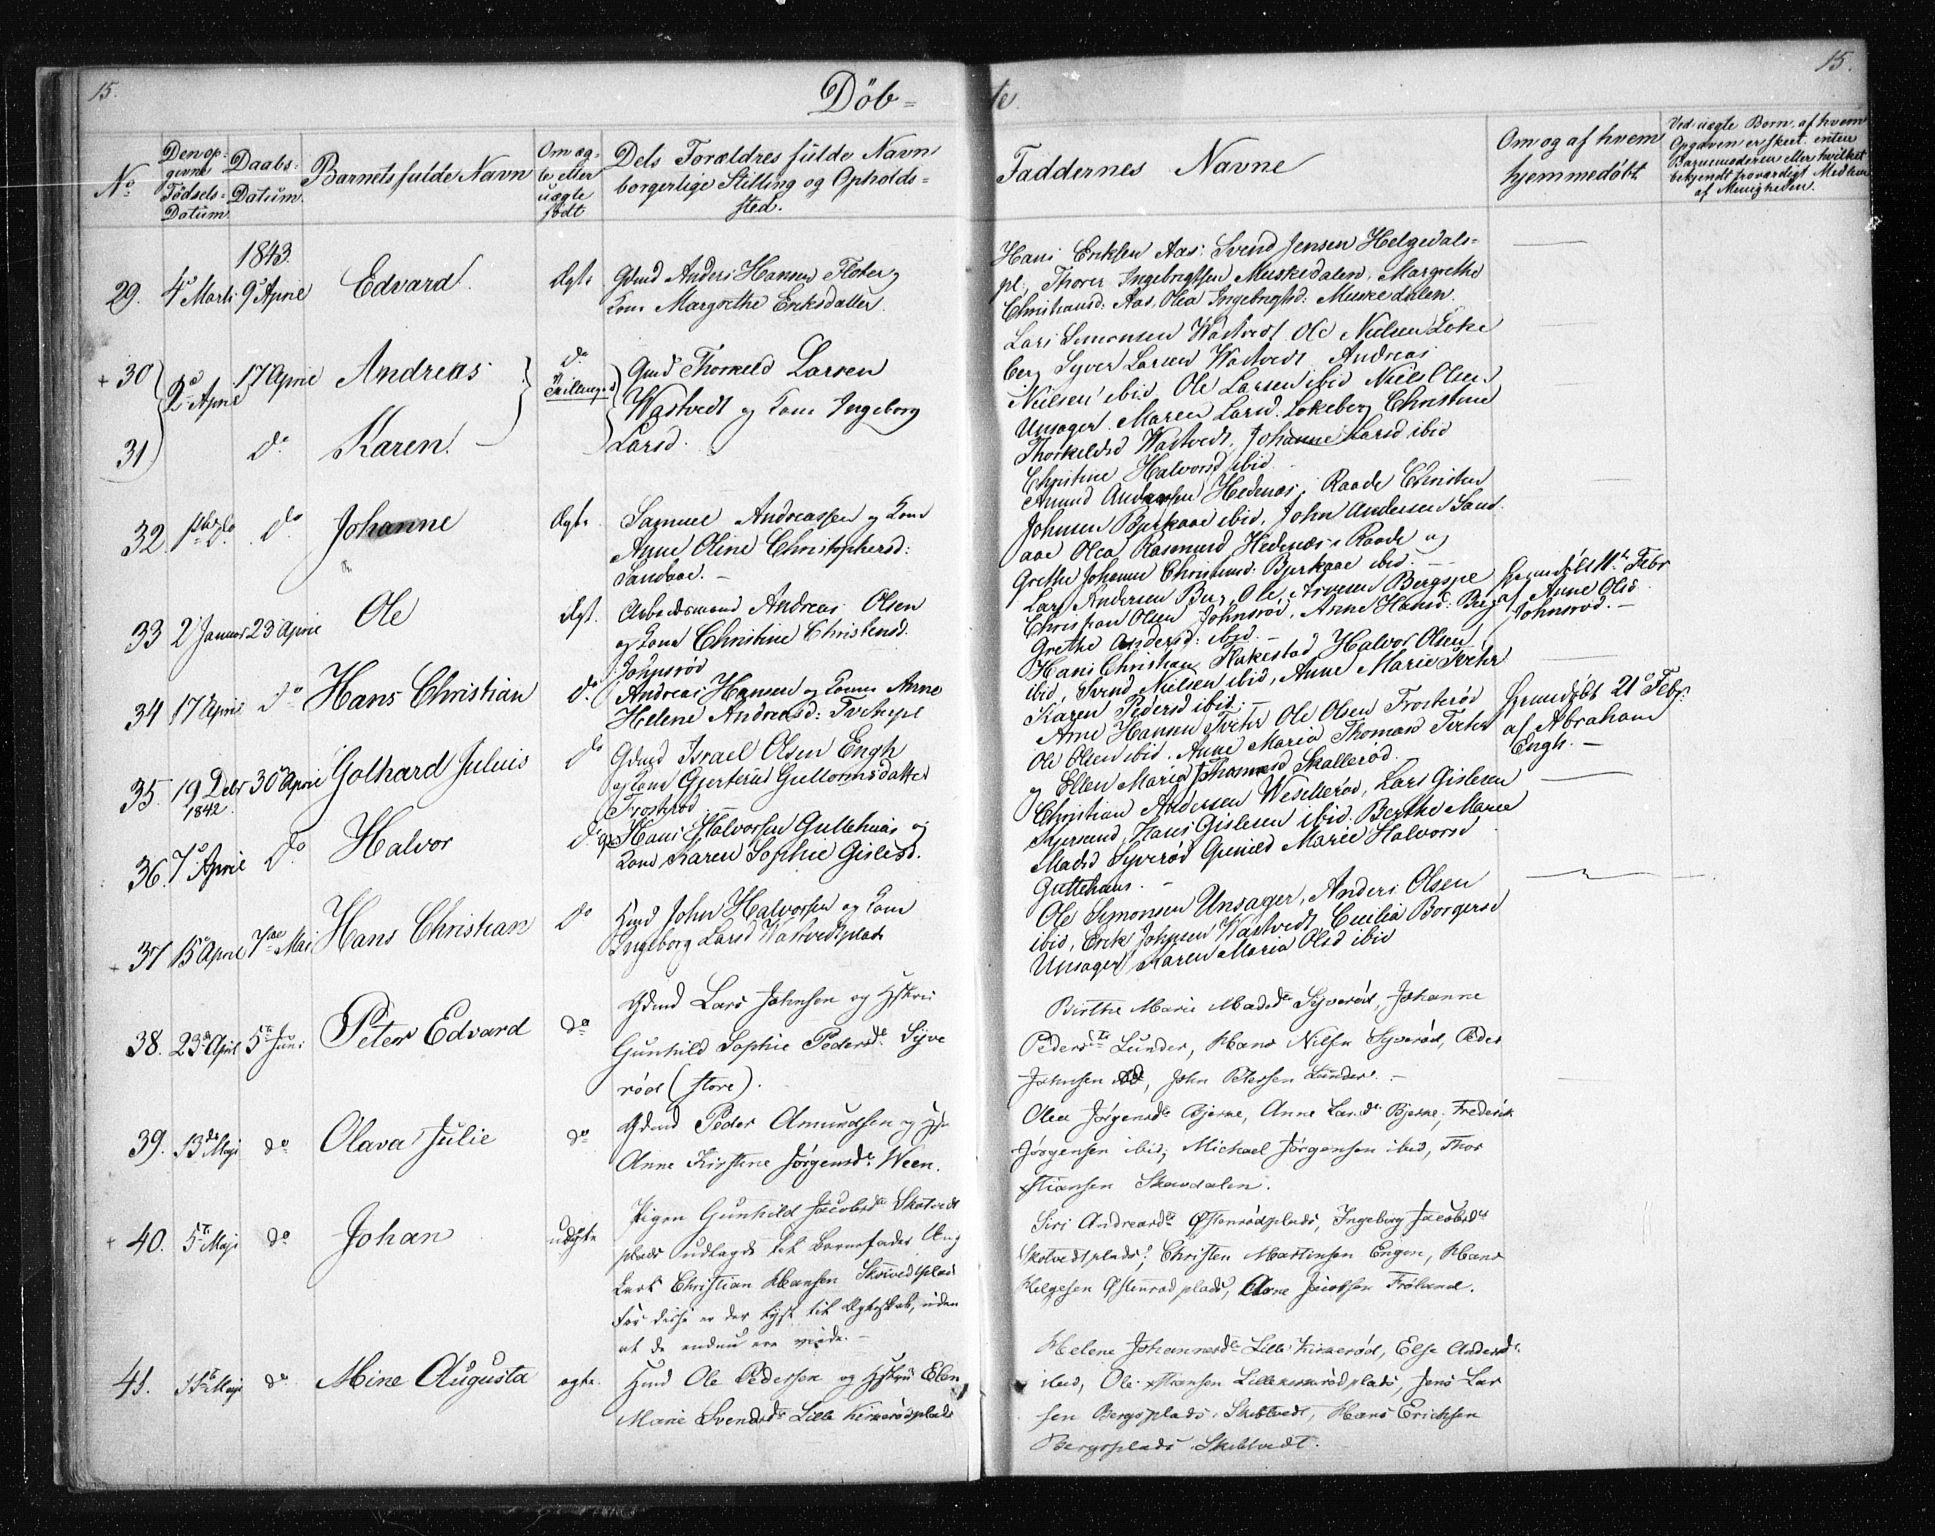 15.
Döb=
te.
15.
No
Den op=
givne
Fødsels=
Datum
Daabs=
Datum.
Barnets fulde Navn
Om æg=
te eller
uægte
født
Dets Forældres fulde Navn
borgerlige Stilling og Opholds=
sted.
Faddernes Navne
Om og af hvem
hjemmedøbt.
Ved uægte Børn, af hvem
Opgaven er skeet, enten
Barnemoderen eller hvilket
bekjendt troværdigt Medlem
af Menigheden.
1843.
29.
4de Marts
9de April
Edvard.
Ægte
Gdmd Anders Hansen
Kone Margrethe Eriksdatter.
Hans Eriksen Aas. Svend Jensen Helgedals=
pl. Thorer Ingebrigtsen Muskedalen. Margrethe
Christiansd: Aas. Olea Ingebrigtsd: Muskedalen.
+ 30
2de April
17 April
Andreas
do
Tvillinger
Gmd Thorkild Larsen
Wastvedt og Kone Ingeborg
Larsd.
31
do
Karen.
Lars Simonsen Wastvedt Ole Nielsen Loke
berg Syver Larsen Wastvedt, Andreas
Nielsen ibid Ole Larsen ibid Niels Olsen
Unsager. Maren Larsd. Lokeberg Christine
Thorkildsd Wastvedt, Johanne Larsd ibid
Christine Halvorsd ibid.
32
do
Johanne
Ægte.
Samuel Andreassen og Kone
Anne Oline Christophersd:
Sandaae.
Amund Andersen Hedenæs, Raade Christen
Johnsen Bjerkaae ibid, John Andersen Sand
aae Olea Rasmusd Hedenæs, Raade og
Grethe Johanne Christiansd: Bjerkaae ibid.
33
2 Januar
23 April
Ole
Ægt.
Arbeidsmand Andreas Olsen
og Kone Christine Christensd.
Johnsrød
Lars Andersen Berg, Ole Iversen Bergspl
Christian Olsen Johnsrød, Anne Hansd: Berg
Grethe Andersd: ibid.
Hjemdøbt 11te Febr
af Anne Olsd.
Johnsrød.
34
17 April
do
Hans Christian
do.
Andreas Hansen og Kone Anne
Helene Andreasd: Tvetepl
Hans Christian Rakkestad Halvor Olsen
ibid, Svend Nielsen ibid, Anne Marie Tveter
Karen Pedersd ibid.
35.
19 Debr
1842.
30 April
Gothard Julius
do
Gdmd Israel Olsen Engh
og Kone Gjertrud Guttormsdatter
Frosterød
Arne Hansen Tveter Ole Olsen Frosterød
Ole Olsen ibid. Anne Maria Thomasd Tveter
og Ellen Maria Thomasd Skallerød.
Hjemdøbt 21de Febr.
af Abraham
Engh.
36.
7de April
do
Halvor
do
Hans Halvorsen Guttehuus og
Kone Karen Sophie Gislesd.
Christian Andersen Wesellerød, Lars Gislesen
Hans Gislesen ibid. Berthe Marie
Madsd Syverød Gunild Marie Halvorsd
Guttehuus.
+ 37
15 April
7de Mai
Hans Christian
do
Hmd John Halvorsen og Kone
Ingeborg Larsd Wastvedtplads
Ole Symonsen Unsager, Anders Olsen
ibid, Erik Johnsen Wastvedt Cecilia Borgersd
Unsager Maren Maria Olsd ibid
38.
23de April
5te Juni
Peter Edvard
do
Gdmd Lars Johnsen og Hstru
Gunhild Sophie Pedersdr. Syve
rød (store).
Birthe Marie Madsdr Syverød, Johanne
Pedersdr Lunder, Hans Nilsen Syverød, Peder
Johnsen ibd, John Petersen Lunder.
39.
13de Maji
do
Olava Julie
do
Gdmd Peder Amundsen og H
Anne Kirstine Jørgensdr. Ween.
Olea Jørgensdr Bjerke, Anne Larsdr Bjerke, Frederik
Jørgensen ibid, Michael Jørgensen ibid, Thor
stiansen Skovdalen.
+ 40.
5te Maji
do
Johan
uægte
Pigen Gunhild Jacobsdr Skotvedt
plads udlagde til Barnefader Ung
karl Christian Hansen Skotvedtplads
For disse er der lyst til Ægteskab, uden
at de endnu ere viede.
Siri Andreasdr Østenrødplads, Ingeborg Jacobsdr
Skotvedtplads, Christen Martinsen Engen, Hans
Helgesen Østenrødplads, Arne Jacobsen Frøland.
41.
11te Maji
do
Mine Augusta
ægte.
Hmd Ole Pedersen og Hstru Elen
Marie Svendsdr Lille Kirkerødplads
Helene Johannesdr Lille Kirkerød, Else Andersdr
ibid, Ole Stiansen Lillekirkerødplads, Jens Lar
sen Bergsplads Skibtvedt, Hans Erichsen
Bergsplads Skibtvedt.